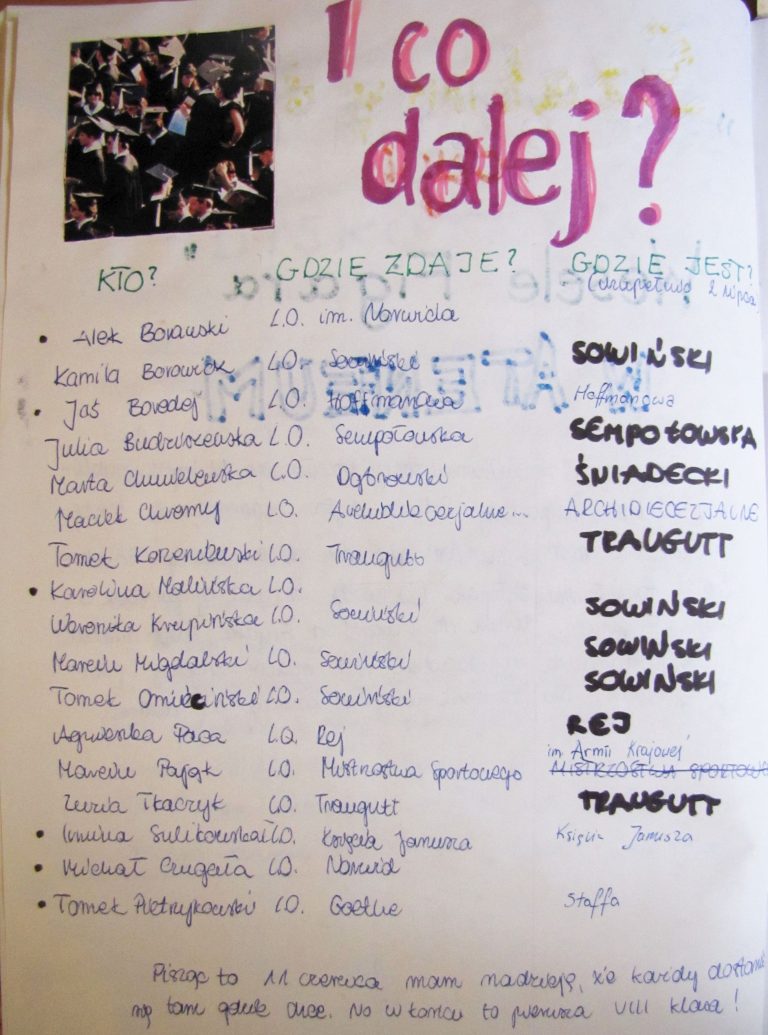 I co
dalej?
KTO? GDZIE ZDAJE? GDZIE JEST?
(uzupełniono 2 lipca)
• Alek Borawski L.O. im. Norwida
Kamila Borowick L.O. Sowiński SOWIŃSKI
• Jaś Boredej L.O. Hoffmanowa Hoffmanowa
Julia Budziszewska L.O. Sempołowska SEMPOŁOWSKA
Marta Chmielewska L.O. Dąbrowski ŚNIADECKI
Maciek Chromy L.O. Archidiecezjalne... ARCHIDIECEZJALNE
Tomek Korzeniewski L.O. Traugutt TRAUGUTT
• Karolina Malińska L.O.
Weronika Krupińska L.O. Sowiński SOWIŃSKI
Marcin Migdalski L.O. Sowiński SOWIŃSKI
Tomek Omieciński L.O. Sowiński SOWIŃSKI
Agnieszka Paca L.O. Rej REJ
im. Armii Krajowej
Marcin Pająk L.O. Mistrzostwa Sportowego MISTRZOSTWA SPORTOWE
Zuzia Tkaczyk L.O. Traugutt TRAUGUTT
• Sulikowska L.O. Księcia Janusza Księcia Janusza
• Michał L.O. Norwid
• Tomek Pietrzykowski L.O. Goethe Staffa
Pisząc to 11 czerwca mam nadzieję, że każdy dostanie
się tam gdzie chce. No w końcu to pierwsza VIII klasa!